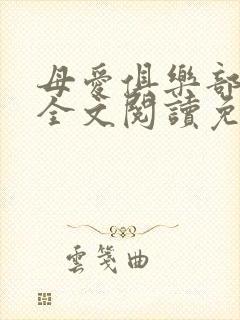 母愛俱樂部
全文閱讀免
雲箋曲